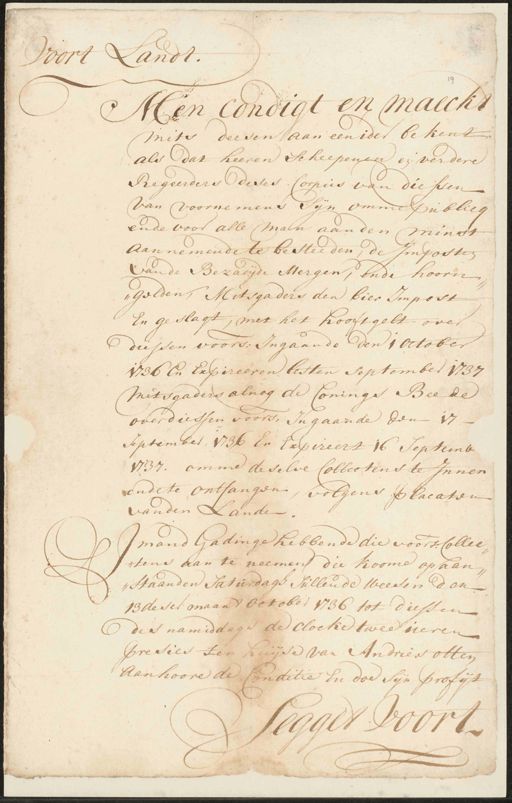 Voort Landt.
19
Men Condigt en maeckt
mits deesen aan een ider bekent
als dat heeren Scheepenen en verdere
Regeerders deses Corpus van diessen
van voornemens sijn omme publicq
ende voor alle man aanden minst
aannemende te besteeden, de Imposten
vande Bezaayde Mergen, ende hoorn-
gelden, Mitsgaders den bier Impost
En geslagt, met het hooftgelt over
diessen voors: Ingaande den 1 October
1736 En Expireeren lesten September 1737
mitsgaders alnog de Conings Beede
over diessen voors: Ingaande den 17-
September 1736 En Expireert 16 Septemb
1737. omme deselve Collectens te Innen
ende te ontfangen, volgens placaten
vanden Lande.
Imand Gadinge hebbende die voors: Collec-
tens aan te neemen die koome op aan-
staanden Saturdagh sullende weesen den
13 deser maand October 1736 tot diessen
des namiddags de clocke twee uren
presies ten huijse van Andries otten
aanhoore de Conditie En doe sijn profijt
Segget Voort